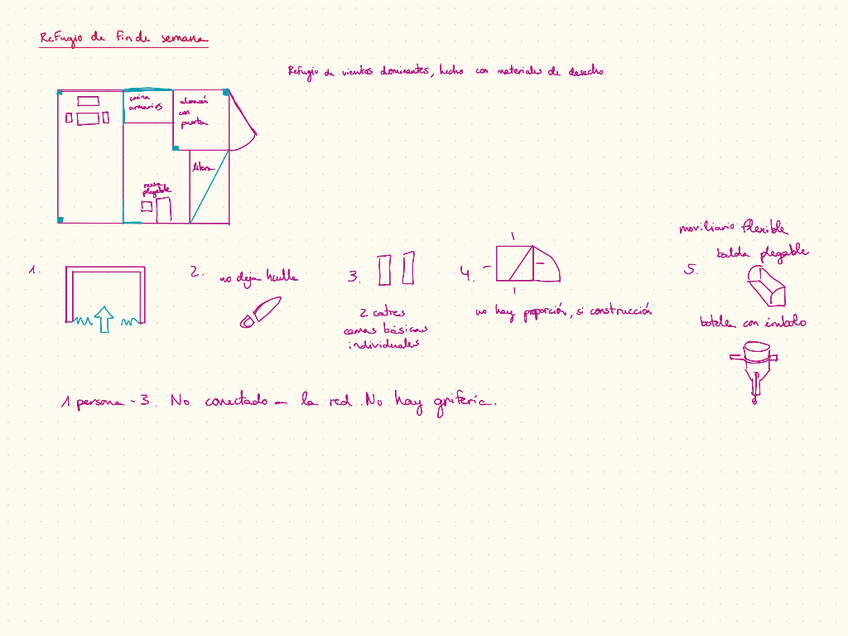 Refugio de fin de semana
Refugio de vientos dominantes, hecho con materiales de desecho
cocina
armarios
almacén
con
puerta
litera
mesa
plegable
1.
2. no deja huella
3.
2 catres
camas básicas
individuales
4.
no hay proporción, si construcción
moviliario flexible
balda plegable
5.
botella con émbolo
1 persona - 3. No conectado a la red. No hay grifería.